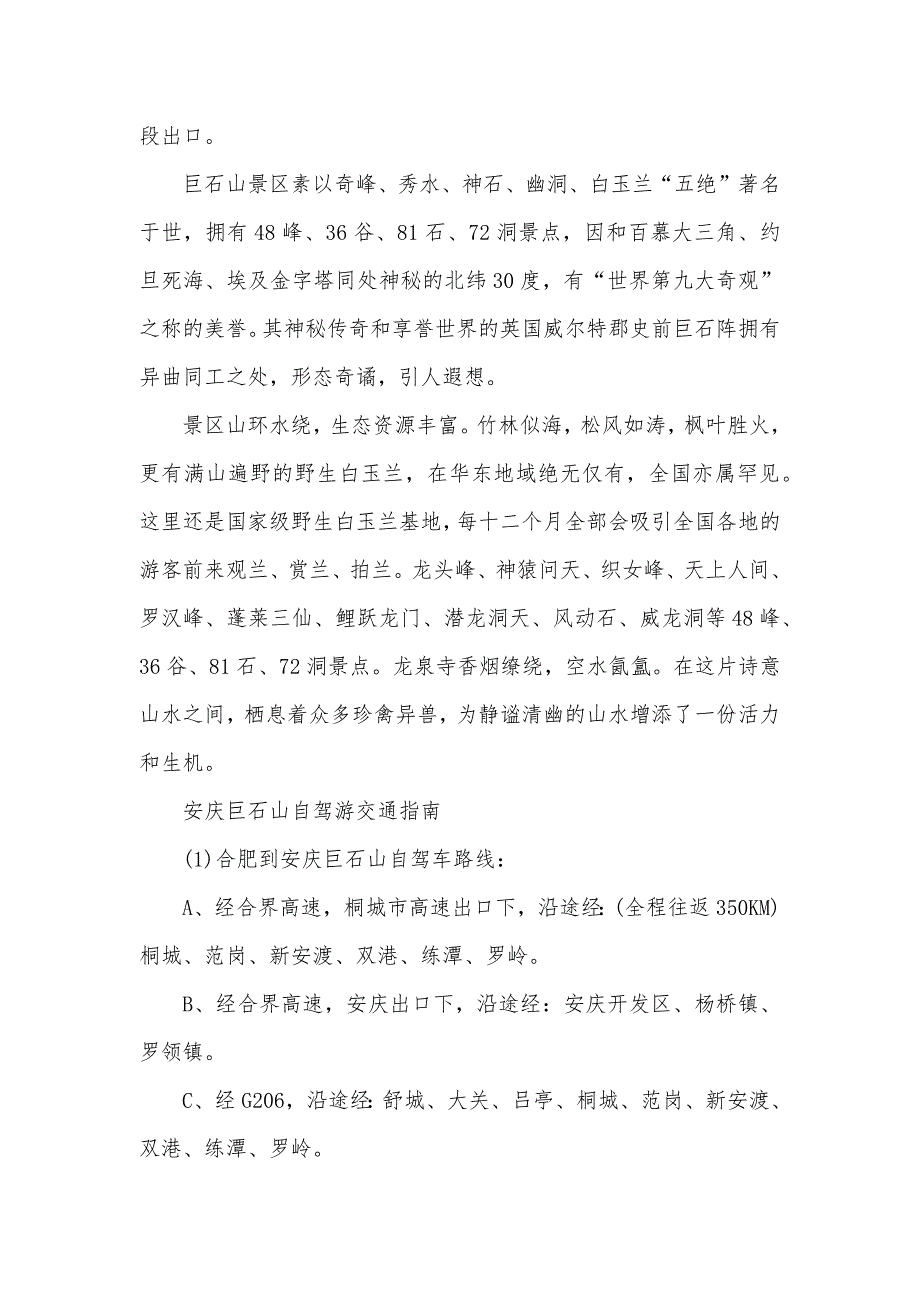 段出口。
巨石山景区素以奇峰、秀水、神石、幽洞、白玉兰“五绝”著名
于世，拥有 48 峰、36 谷、81 石、72 洞景点，因和百慕大三角、约
旦死海、埃及金字塔同处神秘的北纬 30 度，有“世界第九大奇观”
之称的美誉。其神秘传奇和享誉世界的英国威尔特郡史前巨石阵拥有
异曲同工之处，形态奇谲，引人遐想。
景区山环水绕，生态资源丰富。竹林似海，松风如涛，枫叶胜火，
更有满山遍野的野生白玉兰，在华东地域绝无仅有，全国亦属罕见。
这里还是国家级野生白玉兰基地，每十二个月全部会吸引全国各地的
游客前来观兰、赏兰、拍兰。龙头峰、神猿问天、织女峰、天上人间、
罗汉峰、蓬莱三仙、鲤跃龙门、潜龙洞天、风动石、威龙洞等 48 峰、
36 谷、81 石、72 洞景点。龙泉寺香烟缭绕，空水氤氲。在这片诗意
山水之间，栖息着众多珍禽异兽，为静谧清幽的山水增添了一份活力
和生机。
安庆巨石山自驾游交通指南
(1)合肥到安庆巨石山自驾车路线：
A、经合界高速，桐城市高速出口下，沿途经：(全程往返 350KM)
桐城、范岗、新安渡、双港、练潭、罗岭。
B、经合界高速，安庆出口下，沿途经：安庆开发区、杨桥镇、
罗领镇。
C、经 G206，沿途经：舒城、大关、吕亭、桐城、范岗、新安渡、
双港、练潭、罗岭。